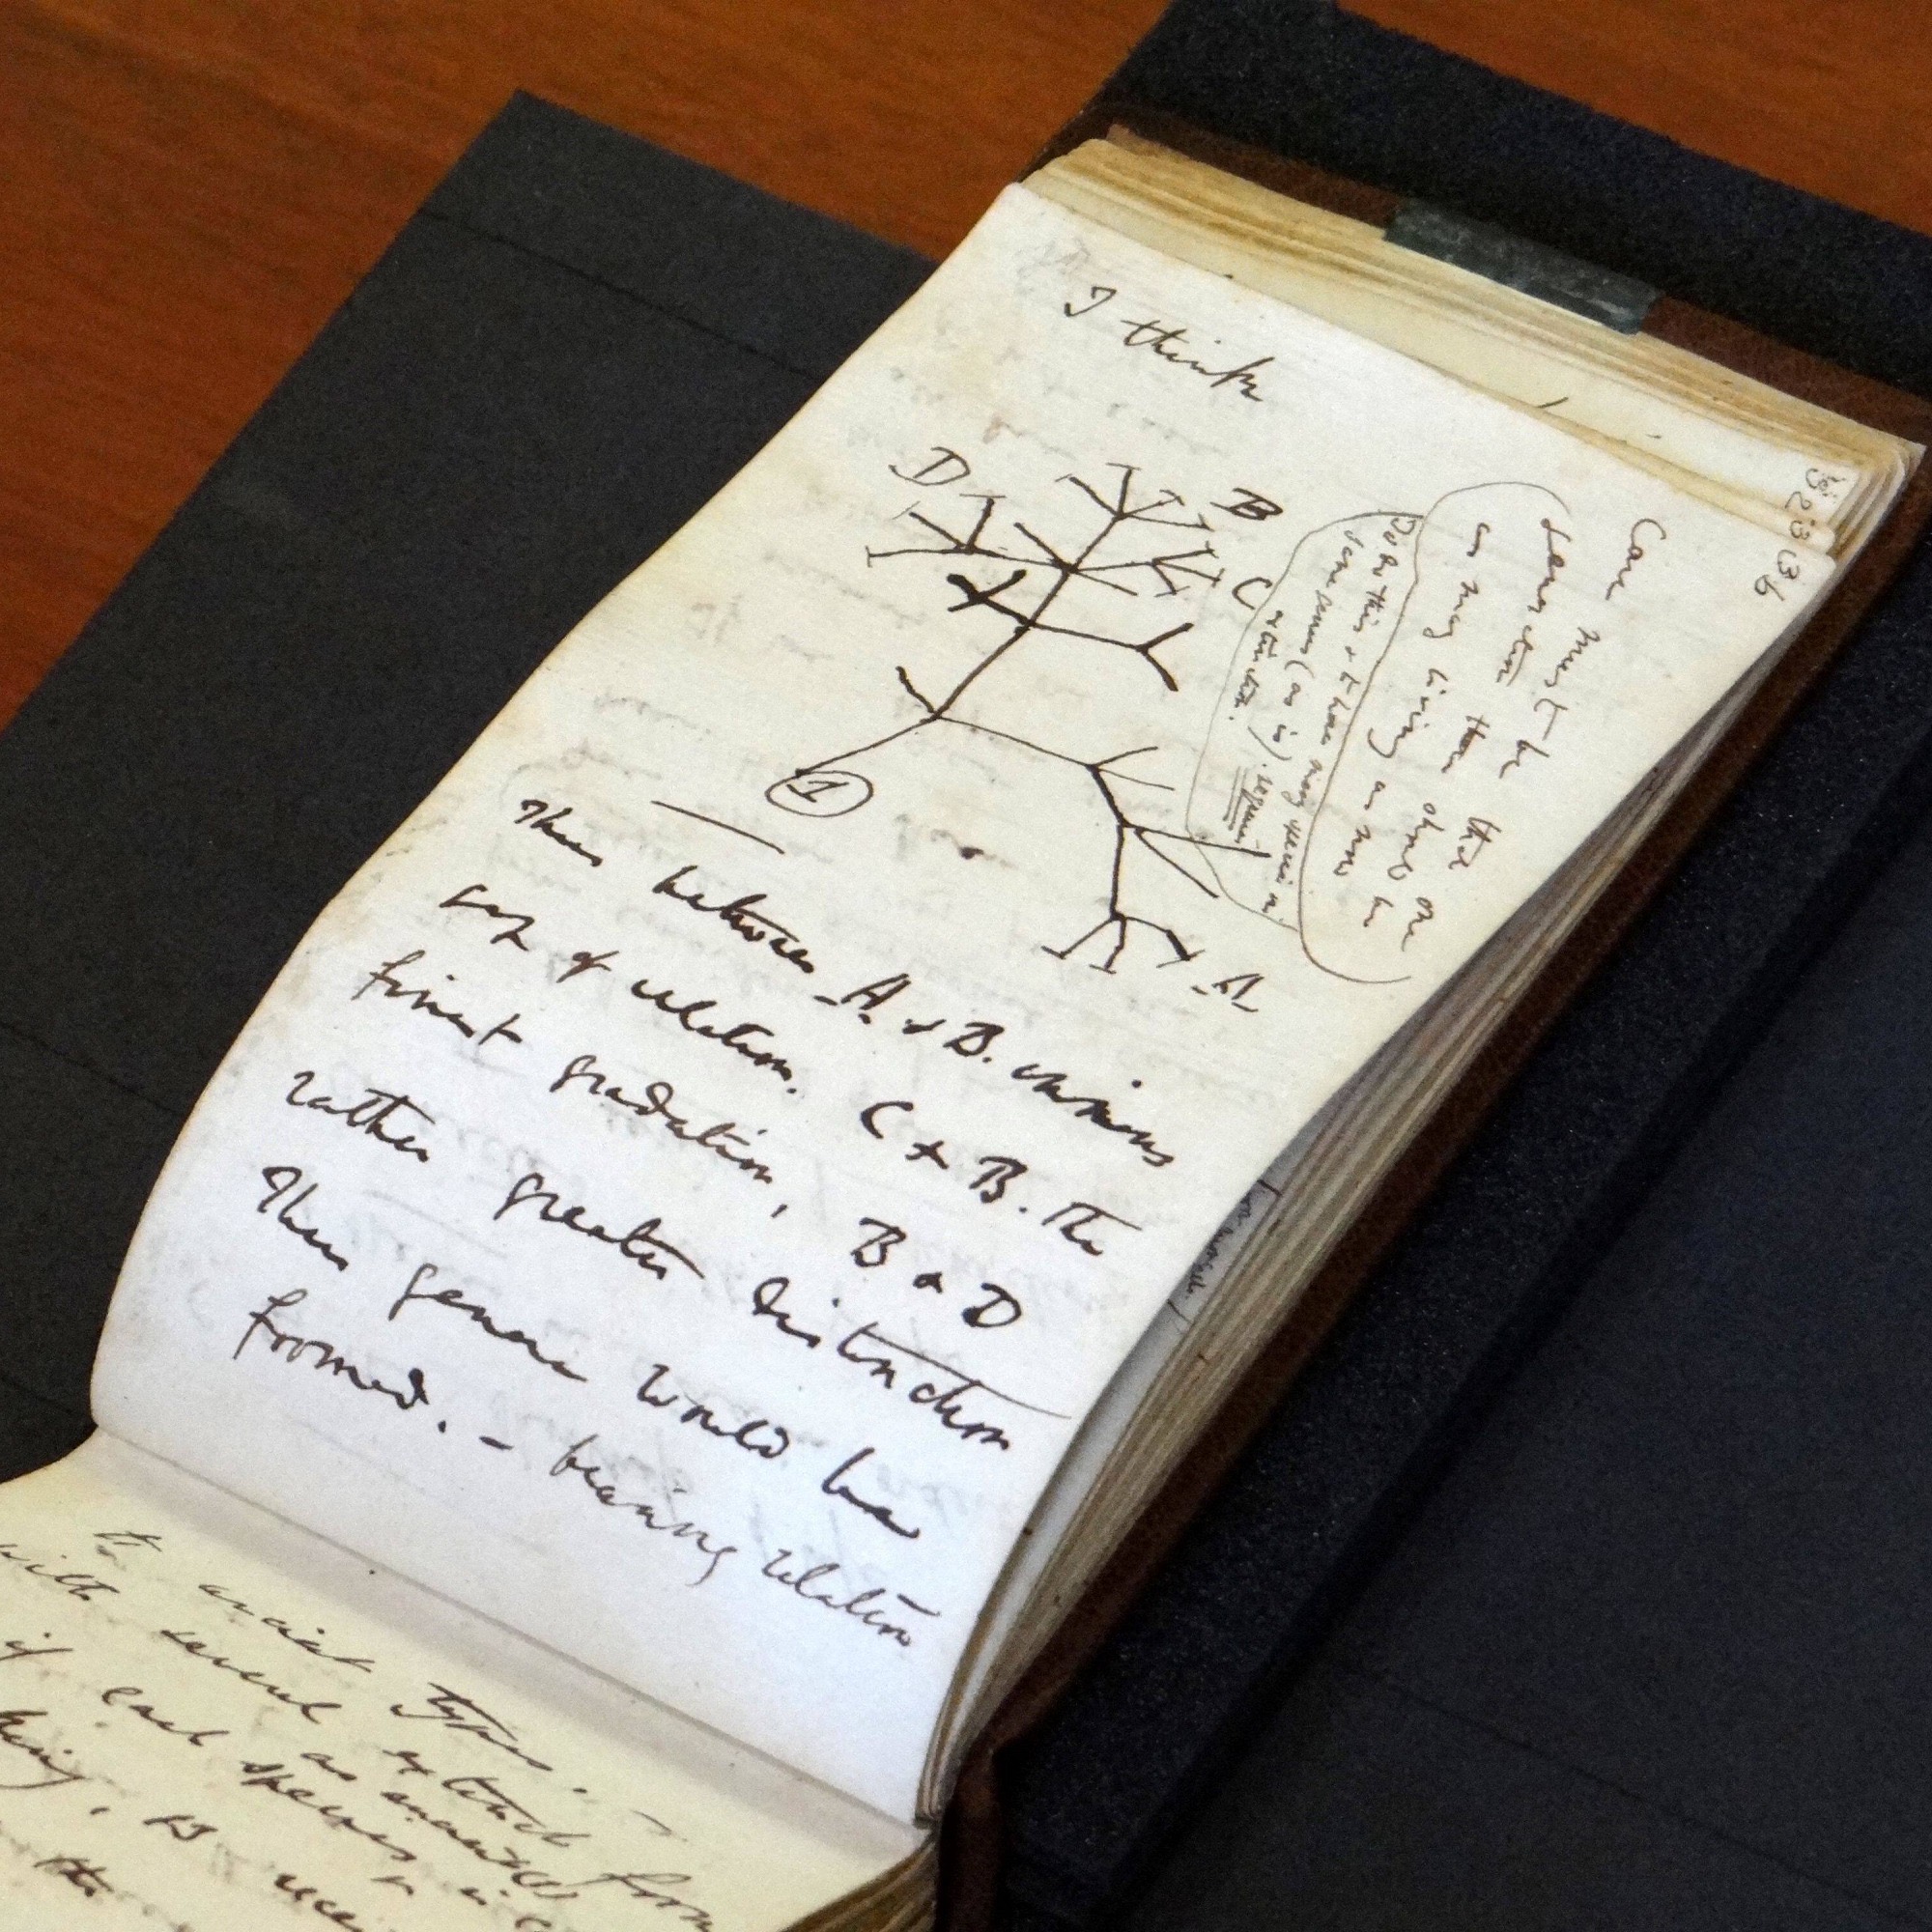 36
I think
D
B
C
A
1
Case must be that
one generation then should be
as many living as now
To do this & to have many species in
same genus (as is). requires
extinction.
Thus between A. & B. immens
gap of relation. C & B. The
finest gradation, B & D
rather greater distinction
Thus genera would be
formed. — bearing relation
to ancient types. —
with several extinct forms
if each species
is
the